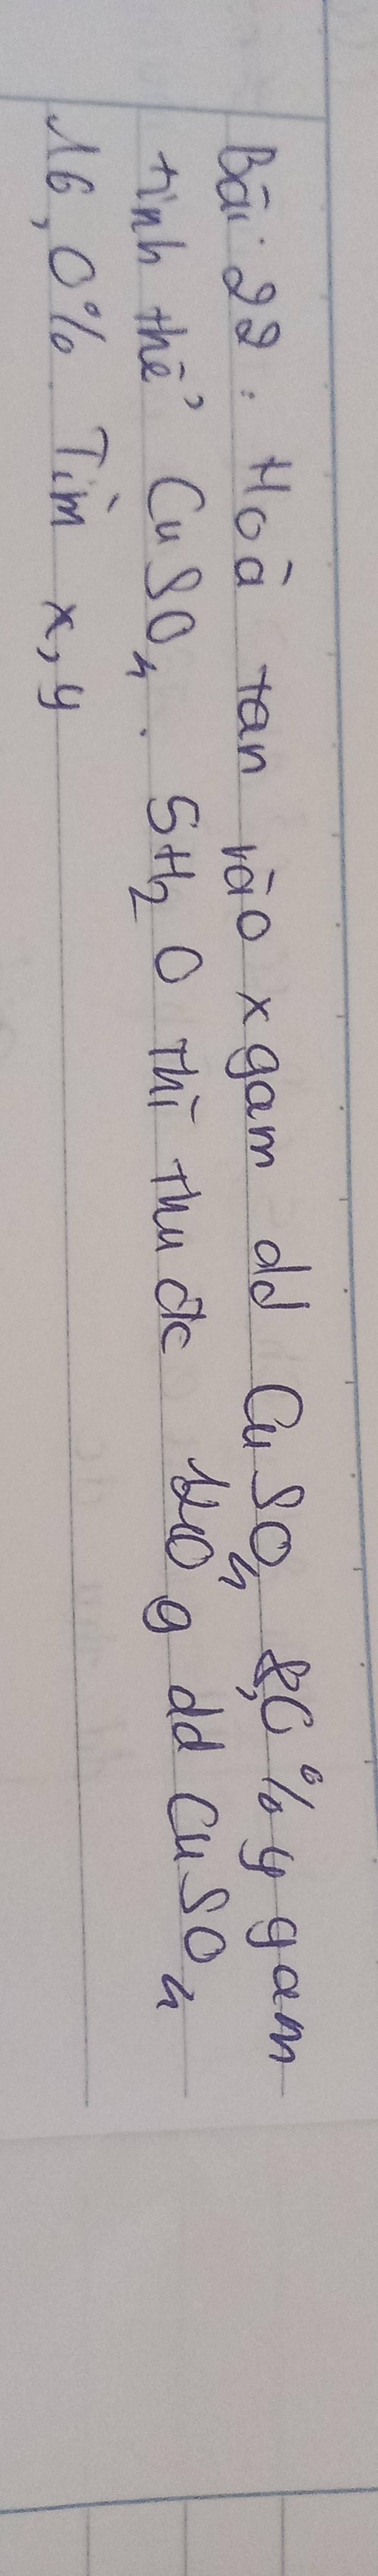 Bài 22: Hoà tan vào x gam dd CuSO4 8,0% y gam
tinh thể CuSO4 . 5H2O thì thu đc g dd CuSO4
16,0% Tìm x,y